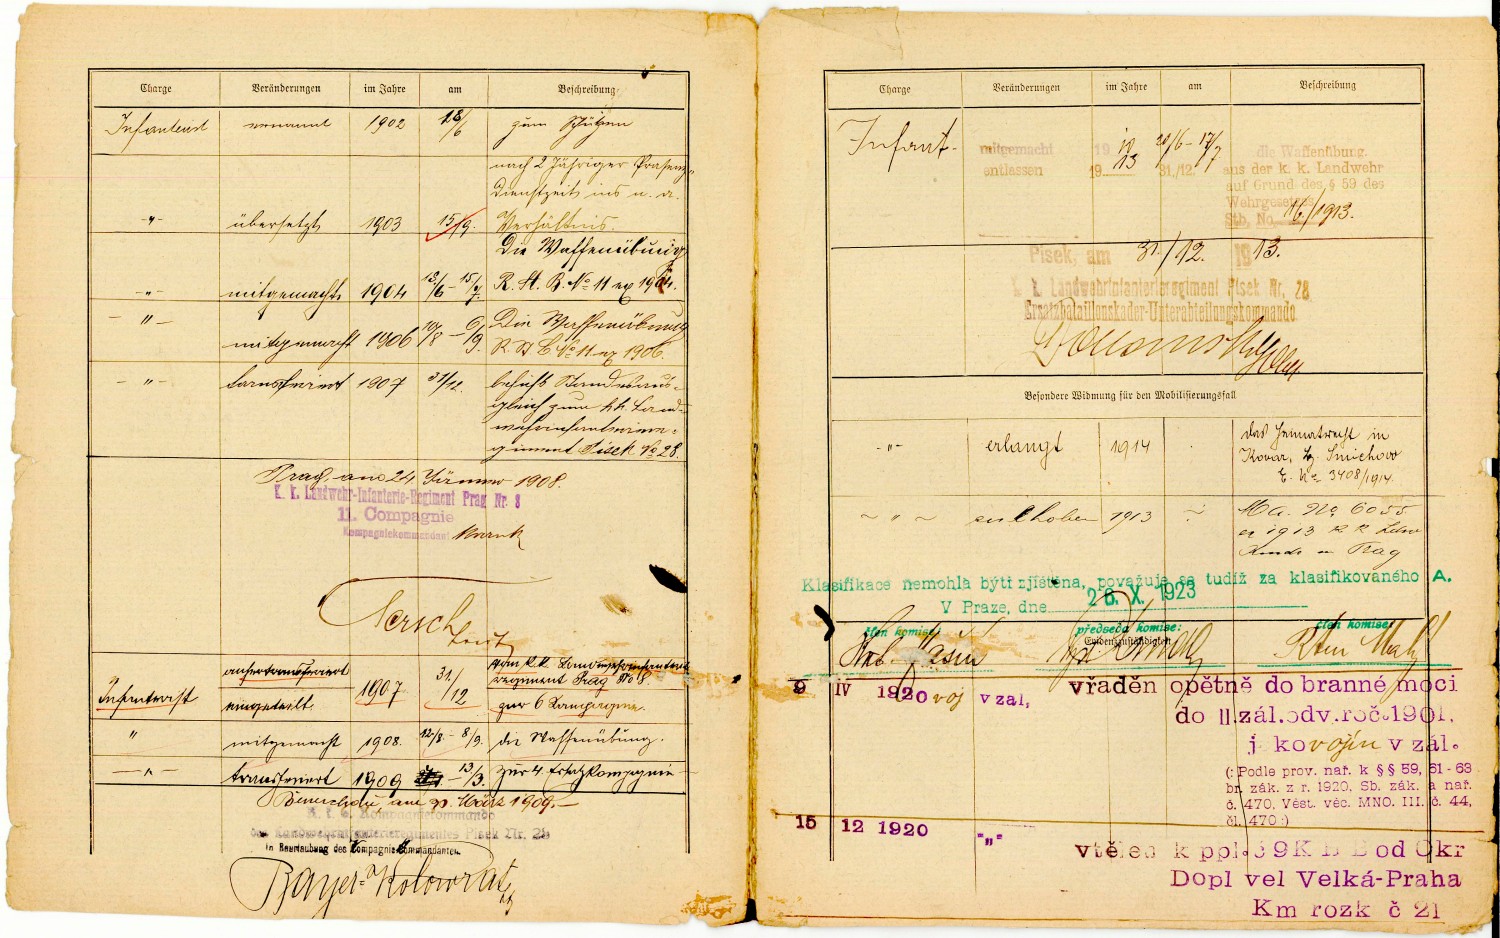 Charge Veränderungen im Jahre am Beschreibung
Infanterist ernannt 1902 18/6 zum Schützen
nach 2 Jähriger Präsenz-
dienstzeit ins n. a.
-"- übersetzt 1903 15/9. Verhältnis.
Die Waffenübung
-"- mitgemacht 1904 13/6 - 15/7. R. St. B. No 11 ex 1904.
-"- mitgemacht 1906 10/8 - 6/9. Die Waffenübung
No 11 ex 1906.
-"- transferiert 1907 31/12. behufs Standesaus-
gleich zum kk. Land-
wehrinfanteriere-
giment Pisek No 28.
Prag, am 24. Jänner 1908.
K. k. Landwehr-Infanterie-Regiment Prag Nr. 8
11. Compagnie
Kompagniekommandant
außertransferiert 31./12 vom k. k. Landwehrinfanterie
regiment Prag No 8.
Infanterist eingeteilt 1907 zur 6 Kompagnie.
" mitgemacht 1908. 12/8. - 8/9. die Waffenübung.
-"- transferiert 1909 13/3. zur 4. Ersatzkompagnie
Beneschau, am März 1909.
K. k. Kompagniecommando
des Landwehrinfanterieregimentes Pisek Nr. 28
in Beurlaubung des Kompagnie-Kommandanten
Bayer-Kolowrat
Charge Veränderungen im Jahre am Beschreibung
Infant. mitgemacht 1913 20/6 - 17/7 die Waffenübung.
entlassen 19 13 31./12. aus der k. k. Landwehr
auf Grund des § 59 des
Wehrgesetzes
Stb. No 16/1913.
Pisek, am 31./12. 1913.
k. k. Landwehrinfanterieregiment Pisek Nr. 28
Ersatzbataillonskader-Unterabteilungskommando
Besondere Widmung für den Mobilisierungsfall
-"- erlangt 1914 das Heimatrecht in
Kovar, Bz. Smichow
E. No 3408/1914.
~ " ~ enthoben 1913 Ma. No 6055
ex 1913 k k Ldw
Kmdo in Prag
Klasifikace nemohla býti zjištěna, považuje se tudíž za klasifikovaného A.
V Praze, dne 26. X. 1923
člen komise: předseda komise: člen komise:
Evidenzzuständigkeiten
9 IV 1920 voj v zál, vřaděn opětně do branné moci
do II.zál.odv.roč.1901.
j. ko vojín v zál.
(: Podle prov. nař. k §§ 59, 61-63
br. zák. z r. 1920. Sb. zák. a nař.
č. 470, Věst. věc. MNO. III. č. 44,
čl. 470 :)
15 12 1920 "„"
vtělen k ppl. od Okr
Dopl vel Velká-Praha
Km rozk č 21